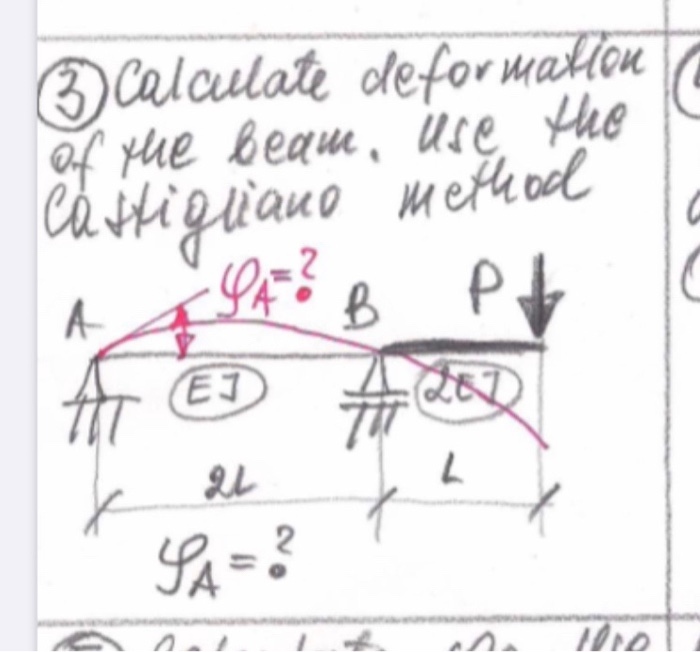 ③ Calculate deformation
of the beam. Use the
Castigliano method
φA=?
A B P
EJ 2EJ
2L L
φA=?